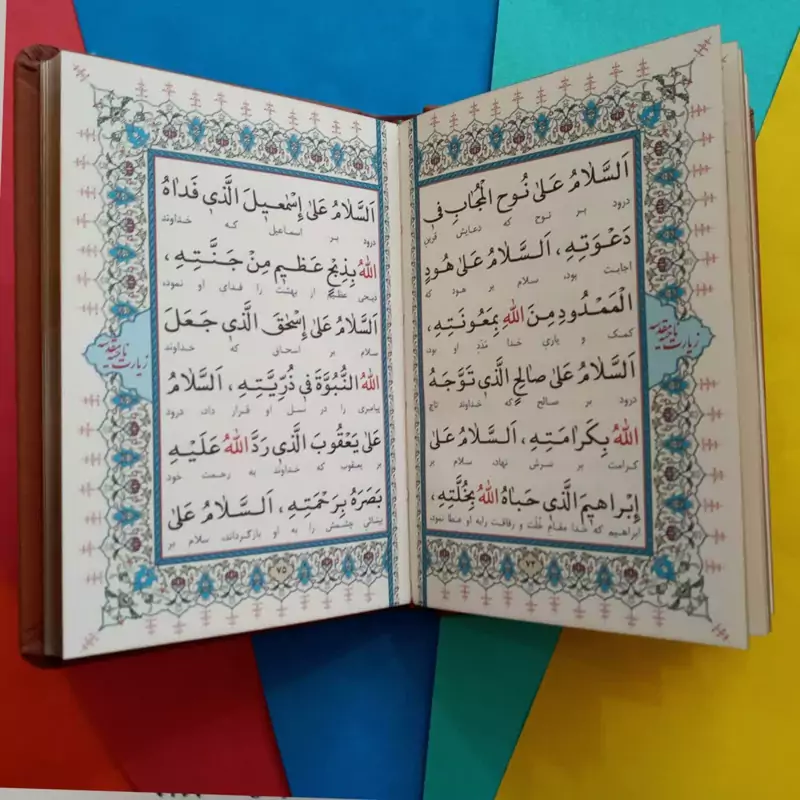 اَلسَّلَامُ عَلىٰ نُوحٍ الْمُجَابِ فِي
درود بر نوح که دعایش قرین
دَعْوَتِهِ، اَلسَّلَامُ عَلىٰ هُودٍ
اجابت بود، سلام بر هود که
الْمَمْدُودِ مِنَ اللهِ بِمَعُونَتِهِ،
کمک و یاری خدا مَدَدِ او بود،
اَلسَّلَامُ عَلىٰ صَالِحٍ الَّذِي تَوَّجَهُ
درود بر صالح که خداوند تاج
اللهُ بِكَرَامَتِهِ، اَلسَّلَامُ عَلىٰ
کرامت بر سرش نهاد، سلام بر
إِبْرَاهِيمَ الَّذِي حَبَاهُ اللهُ بِخُلَّتِهِ،
ابراهیم که خدا مقام خُلّت و رفاقت را به او عطا نمود،
زیارت ناحیه مقدسه
۷۴
اَلسَّلَامُ عَلىٰ إِسْمٰعِيلَ الَّذِي فَدَاهُ
درود بر اسماعیل که خداوند
اللهُ بِذِبْحٍ عَظِيمٍ مِنْ جَنَّتِهِ،
ذبحی عظیم از بهشت را فدای او نمود،
اَلسَّلَامُ عَلىٰ إِسْحٰقَ الَّذِي جَعَلَ
سلام بر اسحاق که خداوند
اللهُ النُّبُوَّةَ فِي ذُرِّيَّتِهِ، اَلسَّلَامُ
پیامبری را در نسل او قرار داد، درود
عَلىٰ يَعْقُوبَ الَّذِي رَدَّ اللهُ عَلَيْهِ
بر یعقوب که خداوند به رحمت خود
بَصَرَهُ بِرَحْمَتِهِ، اَلسَّلَامُ عَلىٰ
بینائی چشمش را به او بازگرداند، سلام بر
زیارت ناحیه مقدسه
۷۵